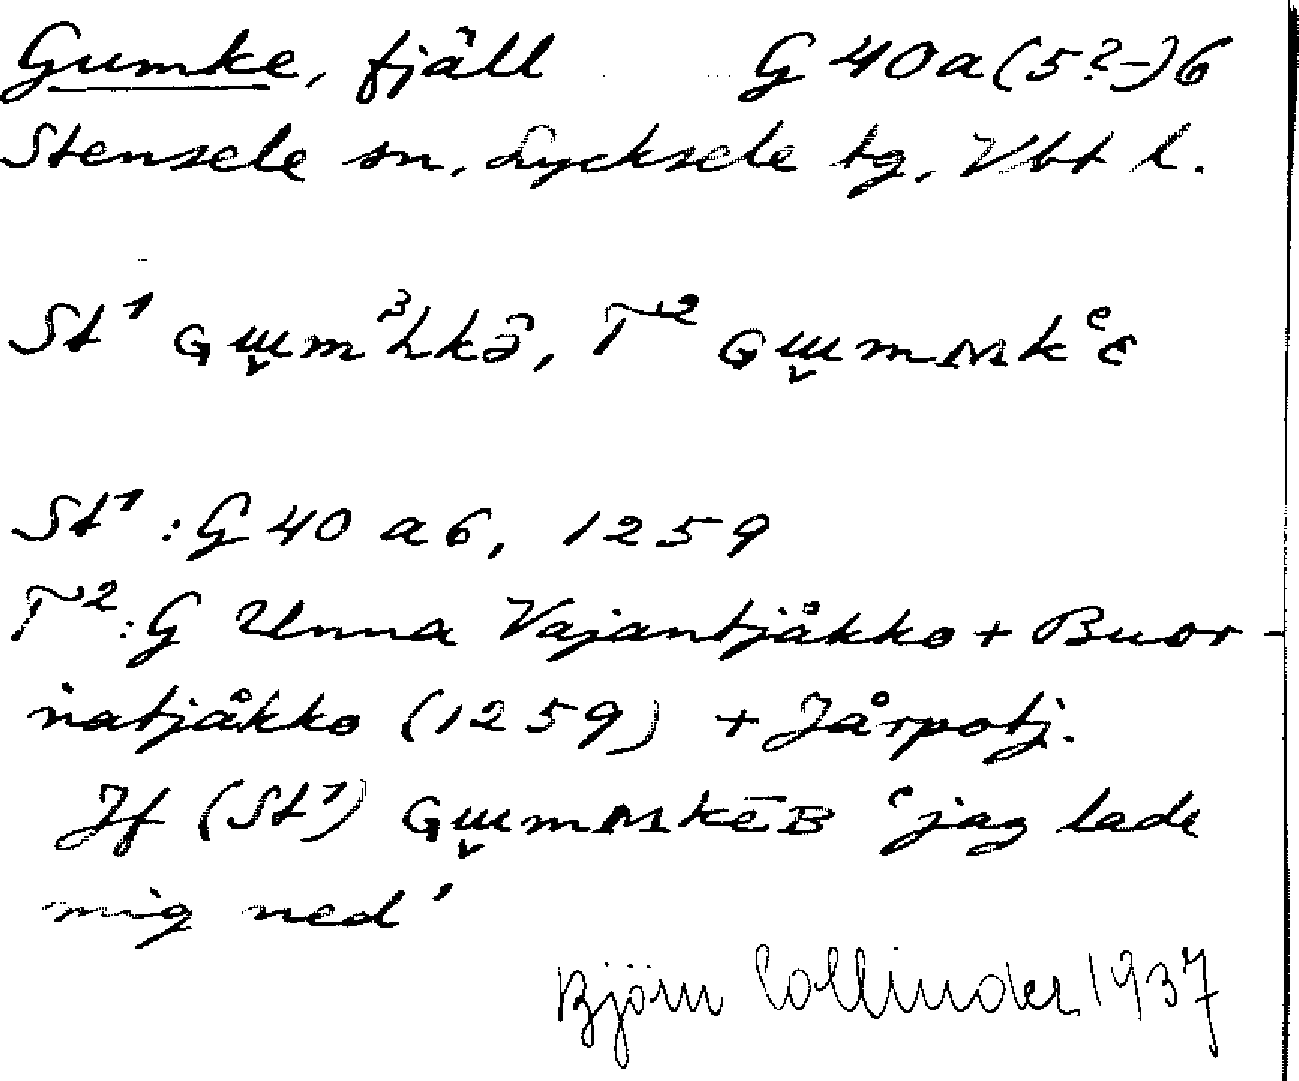 Gumke, fjäll G 40a(5?-)6
Stensele sn, Lycksele tg, Vbt l.
St¹ ɢɯ̬m³hkə̄, T² ɢɯ̬mᴍkᵉε
St¹: G 40 a6, 1259
T²: G Unna Vajantjåkko + Buor-
natjåkko (1259) + Jårpotj.
Jf (St¹) ɢɯ̬mᴍkēʙ 'jag lade
mig ned'
Björn Collinder 1937